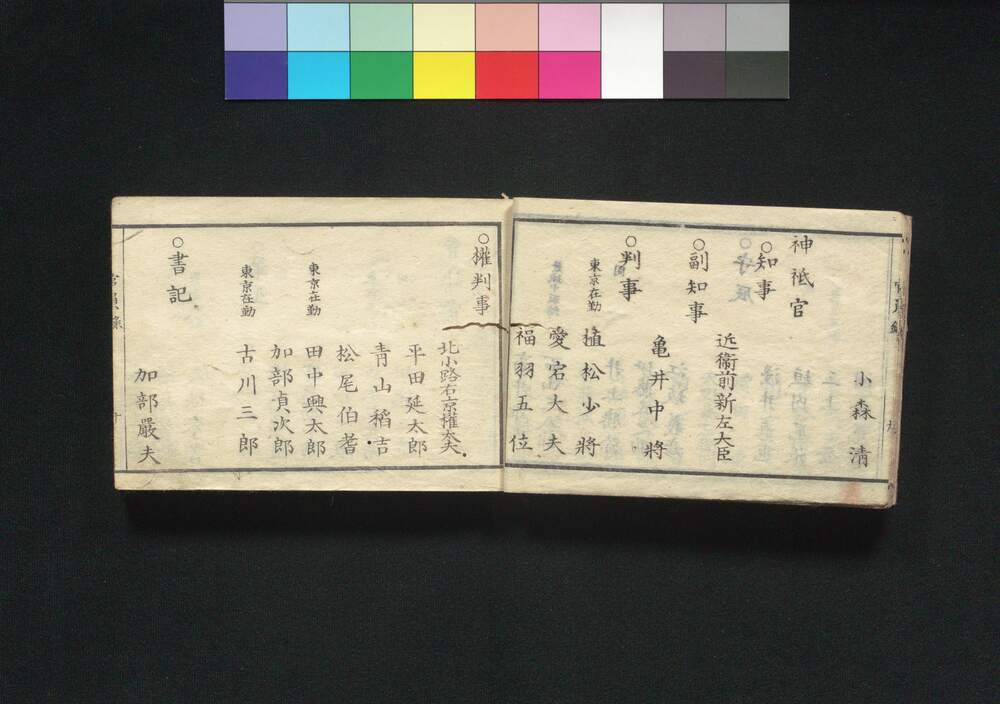 小森清
神祇官
○知事
近衞前新左大臣
○副知事
亀井中將
○判事
東京在勤 植松少將
愛宕大夫
福羽五位
○権判事
北小路右京権大夫
平田延太郎
青山稻吉
松尾伯耆
東京在勤 田中興太郎
加部貞次郎
東京在勤 古川三郎
○書記
加部嚴夫